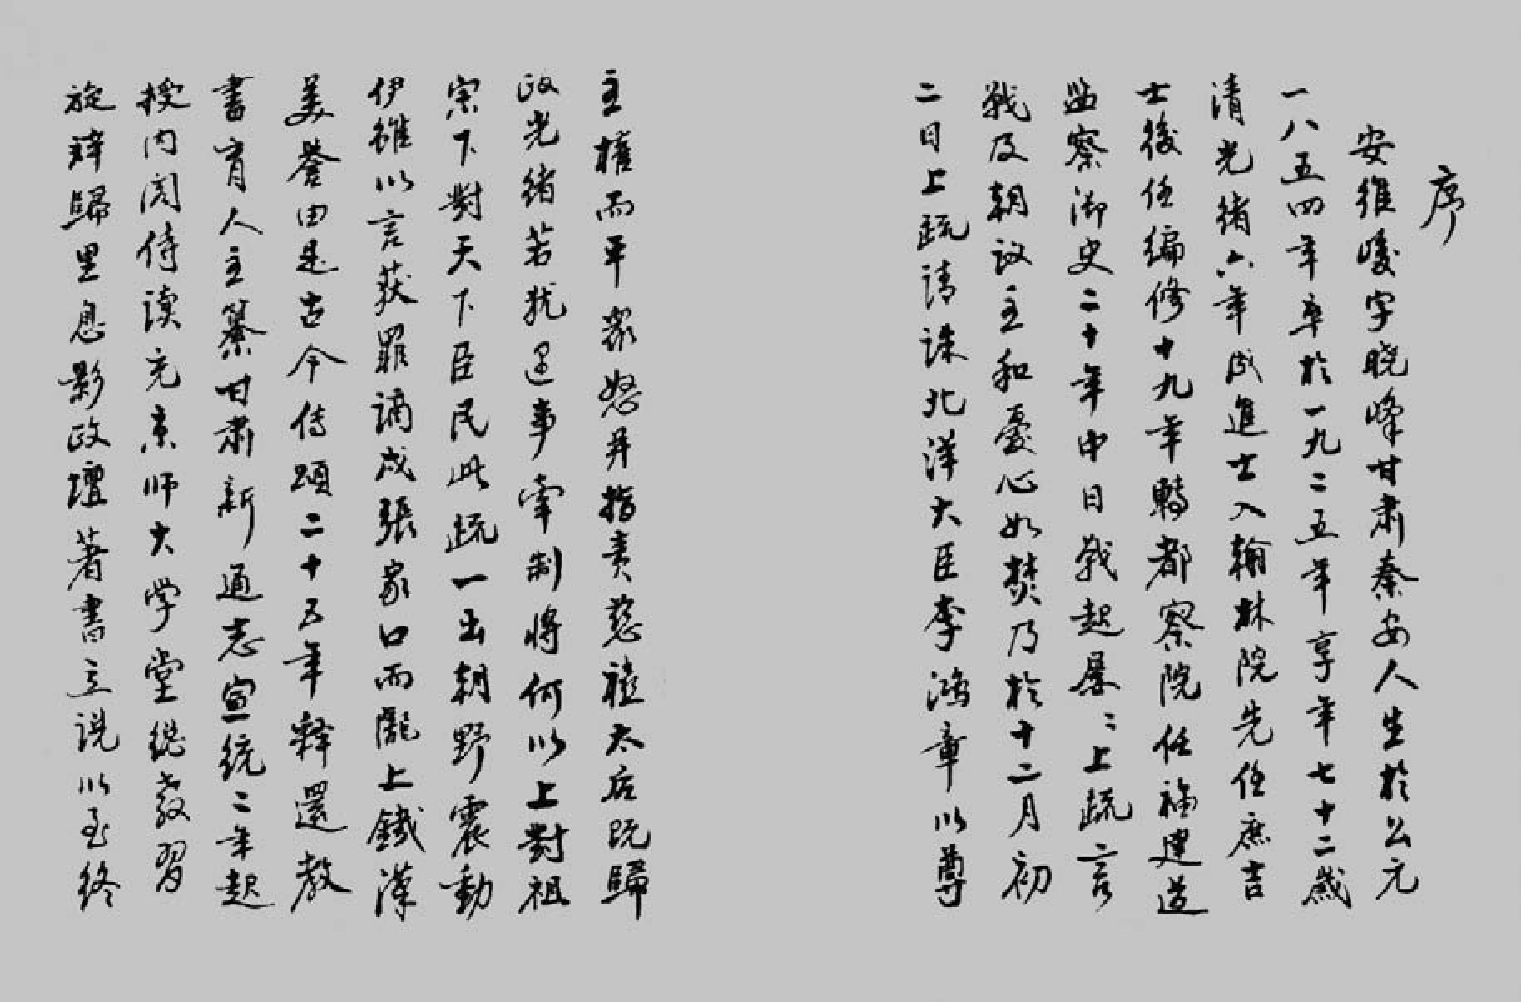 序
安維峻字晓峰甘肃秦安人生於公元
一八五四年卒於一九二五年享年七十二歳
清光緒六年成進士入翰林院先任庶吉
士後任编修十九年轉都察院任福建道
监察御史二十年中日戰起屡〻上疏言
戰及朝议主和憂心如焚乃於十二月初
二日上疏请诛北洋大臣李鴻章以尊
主權而平衆怒并指责慈禧太后既歸
政光绪若犹遇事牽制將何以上對祖
宗下對天下臣民此疏一出朝野震動
伊雖以言获罪谪戍張家口而隴上鐵漢
美誉由是古今传頌二十五年释還教
書育人主纂甘肃新通志宣统二年起
授内阁侍读充京师大学堂総教習
旋辞歸里息影政壇著書立说以至终